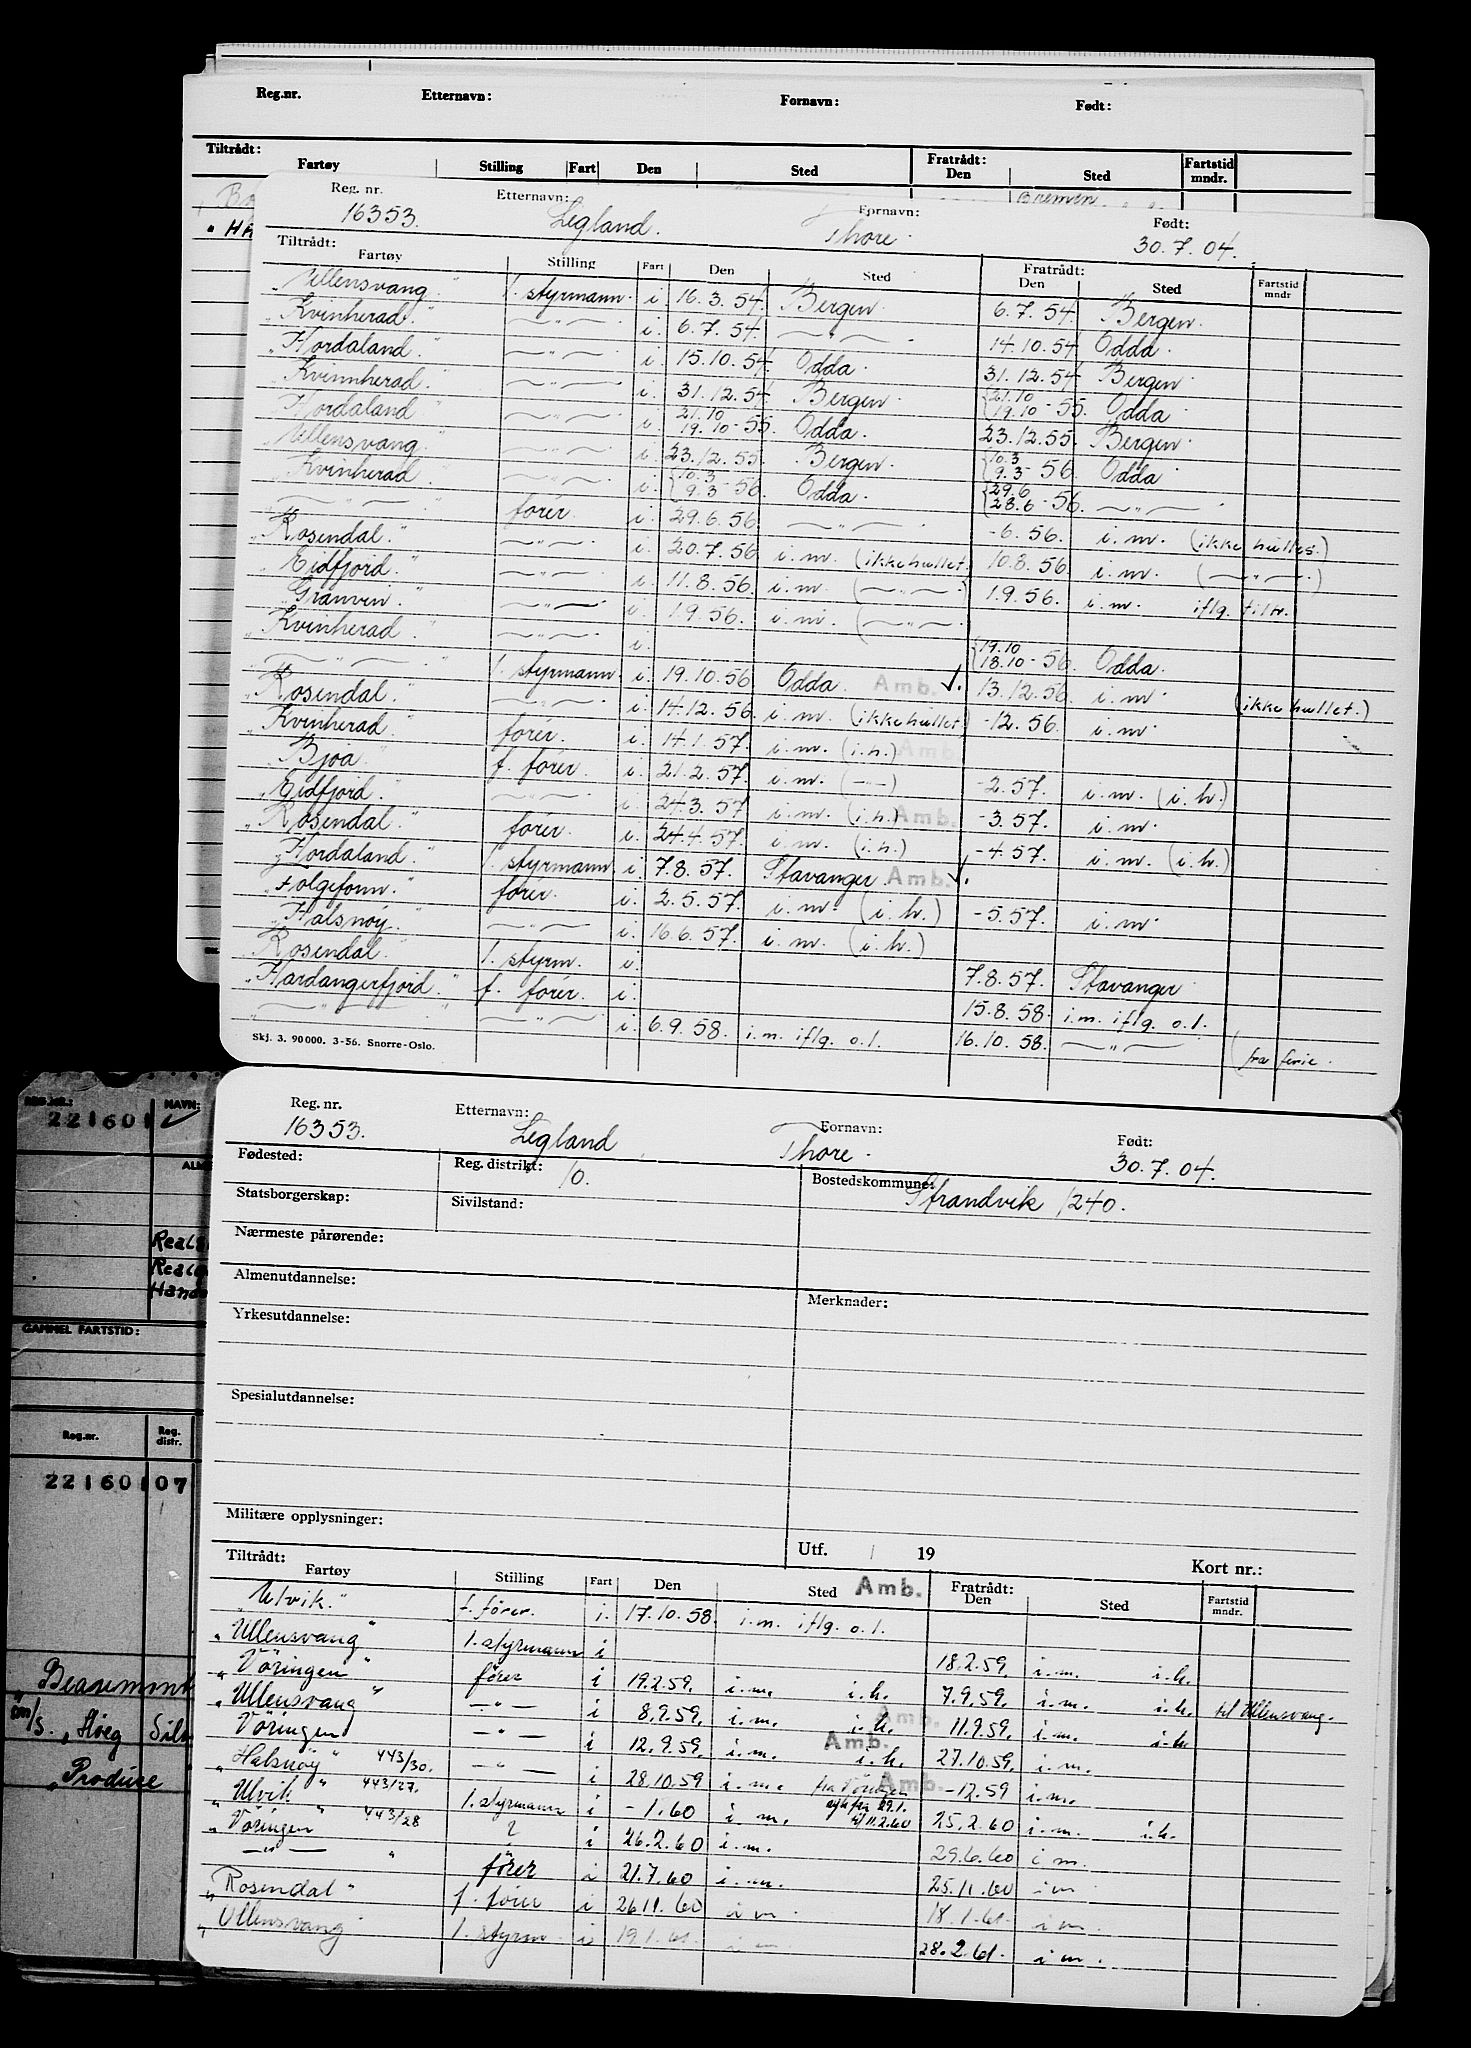 Reg.nr. Etternavn: Fornavn: Født:
Tiltrådt: Fratrådt:
Fartøy Stilling Fart Den Sted Den Sted Fartstid mndr.
Bremen
Reg. nr. Etternavn: Fornavn: Født:
16353. Legland. Thore. 30.7.04.
Tiltrådt: Fratrådt:
Fartøy Stilling Fart Den Sted Den Sted Fartstid mndr
"Ullensvang." 1. styrmann. i. 16.3.54. Bergen. 6.7.54. Bergen.
"Kvinherad." —"— i. 6.7.54. —"— 14.10.54. Odda.
"Hordaland." —"— i. 15.10.54. Odda. 31.12.54. Bergen.
"Kvinnherad." —"— i. 31.12.54. Bergen. {21.10 19.10-55. Odda
"Hordaland" —"— i. 21.10 19.10-55. Odda. 23.12.55. Bergen.
"Ullensvang" —"— i. 23.12.55. Bergen. {10.3 9.3-56. Odda
"Kvinherad" —"— i. {10.3 9.3-56. Odda. {29.6 28.6-56. —"—
—"— fører. i. 29.6.56. —"— -6.56. i.m. (ikke hullet.)
"Rosendal." —"— i. 20.7.56. i.m. (ikke hullet. 10.8.56. i.m. (—"—.)
"Eidfjord." —"— i. 11.8.56. i.m. (—"—.) 1.9.56. i.m. iflg. tiltr.
"Granvin." —"— i. 1.9.56. i.m. (—"—.
"Kvinherad." —"— i. {19.10 18.10-56. Odda.
—"— 1. styrmann. i. 19.10.56. Odda. Amb. 13.12.56. i.m. (ikke hullet.)
"Rosendal." —"— i. 14.12.56. i.m. (ikke hullet) -12.56. i.m.
"Kvinherad." fører. i. 14.1.57. i.m. (i.h.) Amb.
"Bjoa" f. fører. i. 21.2.57. i.m. (—"—) -2.57. i.m. (i.h.)
"Eidfjord." —"— i. 24.3.57 i.m. (i.h.) Amb. -3.57. i.m.
"Rosendal." fører. i. 24.4.57. i.m. (i.h.) -4.57. i.m. (i.h.)
"Hordaland." 1. styrmann. i. 7.8.57. Stavanger. Amb.
"Folgefonn." fører. i. 2.5.57. i.m. (i.h.) -5.57. i.m.
"Halsnøy." —"— i. 16.6.57. i.m. (i.h.)
"Rosendal." 1. styrm. i. 7.8.57. Stavanger.
"Hardangerfjord." f. fører. i. 15.8.58. i.m. iflg. o.l.
—"— —"— i. 6.9.58. i.m. iflg. o.l. 16.10.58. —"— (fra ferie.
Skj. 3. 90 000. 3-56. Snorre-Oslo.
REG.NR.: NAVN:
221601
GAMMEL FARTSTID:
Reg.nr. Reg. distr.
221601 07
"Beaumont
m/s. "Høeg Silv
"Produce
Reg. nr. Etternavn: Fornavn: Født:
16353. Legland, Thore. 30.7.04.
Fødested: Reg. distrikt: 10. Bostedskommune: Strandvik 1240.
Statsborgerskap: Sivilstand:
Nærmeste pårørende:
Almenutdannelse: Merknader:
Yrkesutdannelse:
Spesialutdannelse:
Militære opplysninger:
Utf. / 19 Kort nr.:
Tiltrådt: Fratrådt:
Fartøy Stilling Fart Den Sted Amb. Den Sted Fartstid mndr.
"Ulvik." f. fører. i. 17.10.58. i.m. iflg. o.l.
"Ullensvang" 1. styrmann i 18.2.59. i.m. i.h.
"Vöringen" fører i 19.2.59. i.m. i.h. 7.9.59. i.m. i.h. til Ullensvang.
"Ullensvang" —"— i 8.9.59. i.m. i.h. Amb. 11.9.59. i.m. i.h
"Vöringen —"— i 12.9.59. i.m. Amb. i.h. 27.10.59. i.m.
"Halsnøy" 443/30. —"— i 28.10.59 i.m. Amb. -12.59 i.m.
"Ulvik" 443/27. 1. styrmann i -1.60 i m. 29.1. til 11.2.60 25.2.60 i.m. i.h.
"Vöringen" 443/28 i 26.2.60 i.m. 29.6.60 i m.
—"— " fører i 21.7.60 i.m. 25.11.60 i m
"Rosendal" f. fører i 26.11.60 i m. 18.1.61. i m.
"Ullensvang 1. styrm i 19.1.61. i m. 28.2.61. i m.